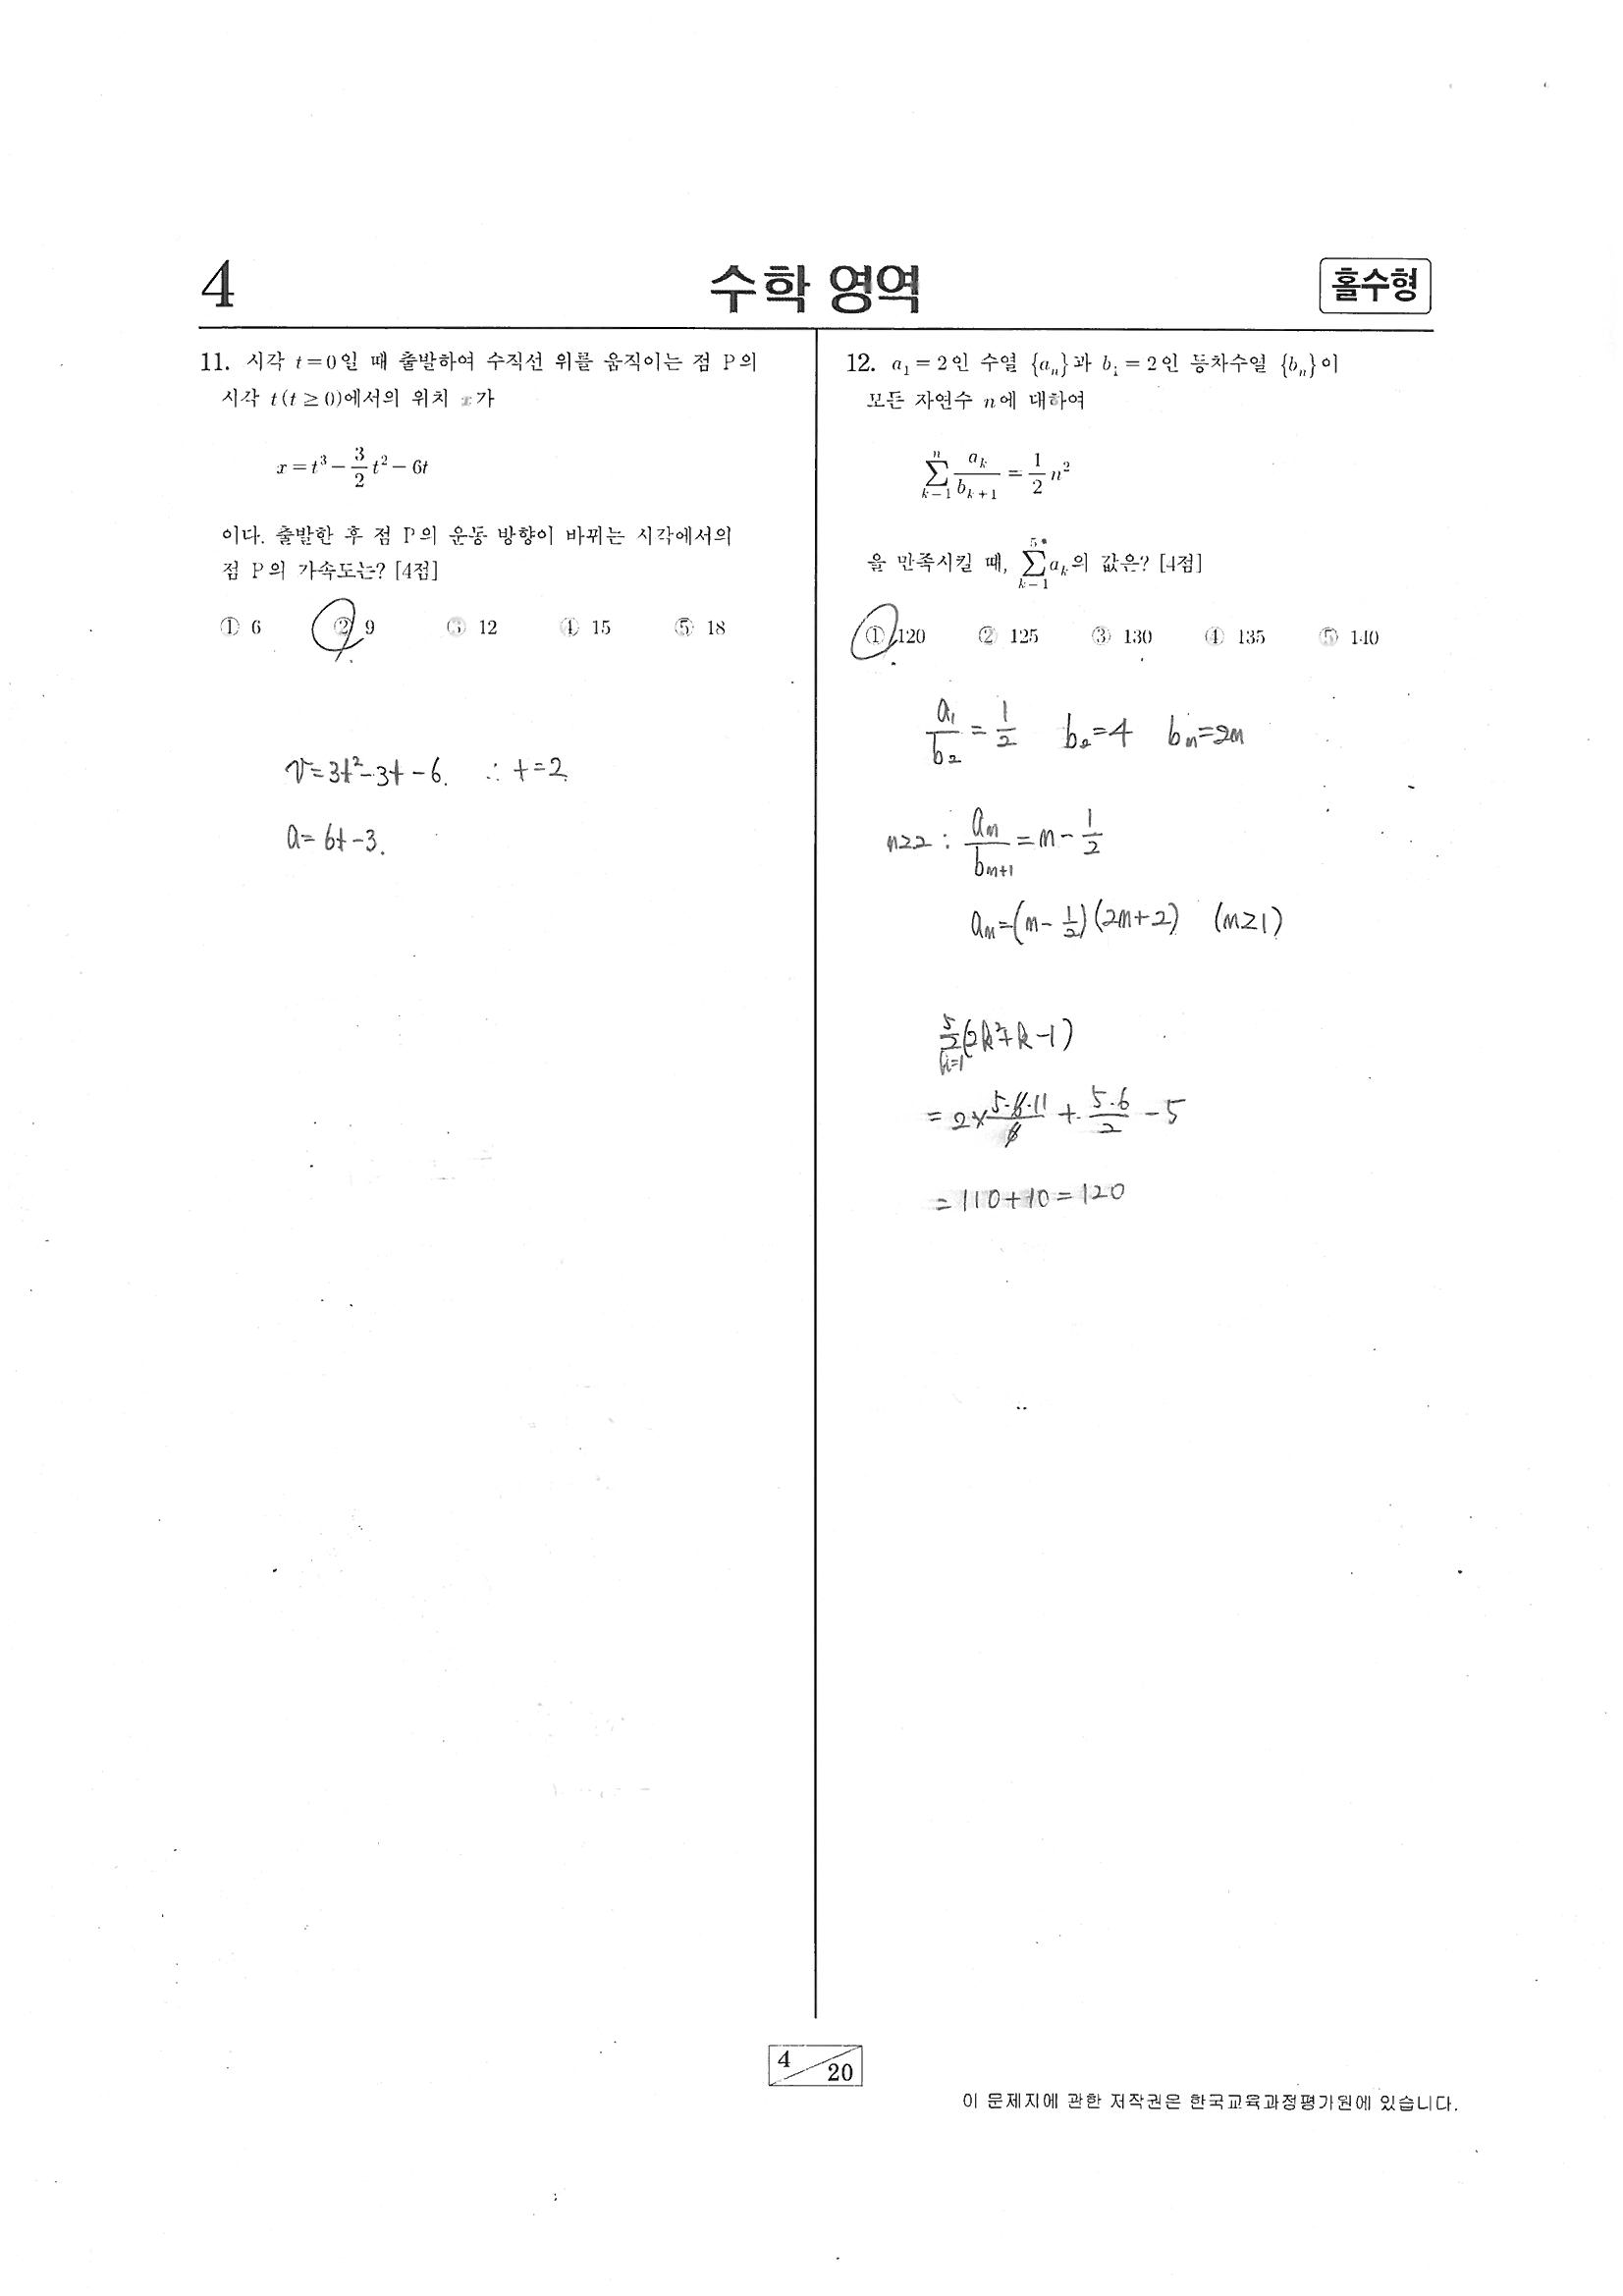 4
수학 영역
홀수형
11. 시각 t=0일 때 출발하여 수직선 위를 움직이는 점 P의
시각 t(t≥0)에서의 위치 x가
x=t³−\frac{3}{2}t²−6t
이다. 출발한 후 점 P의 운동 방향이 바뀌는 시각에서의
점 P의 가속도는? [4점]
① 6 ② 9 ③ 12 ④ 15 ⑤ 18
v=3t²-3t-6. ∴ t=2.
a=6t-3.
12. a₁=2인 수열 {aₙ}과 b₁=2인 등차수열 {bₙ}이
모든 자연수 n에 대하여
\sum_{k=1}^{n} \frac{a_k}{b_{k+1}} = \frac{1}{2}n²
을 만족시킬 때, \sum_{k=1}^{5} a_k의 값은? [4점]
① 120 ② 125 ③ 130 ④ 135 ⑤ 140
\frac{a₁}{b₂}=\frac{1}{2} b₂=4 bₙ=2n
n≥2 : \frac{a_n}{b_{n+1}}=n-\frac{1}{2}
aₙ=(n-\frac{1}{2})(2n+2) (n≥1)
\sum_{k=1}^{5}(2k²+k-1)
=2×\frac{5·6·11}{6}+\frac{5·6}{2}-5
=110+10=120
4
20
이 문제지에 관한 저작권은 한국교육과정평가원에 있습니다.